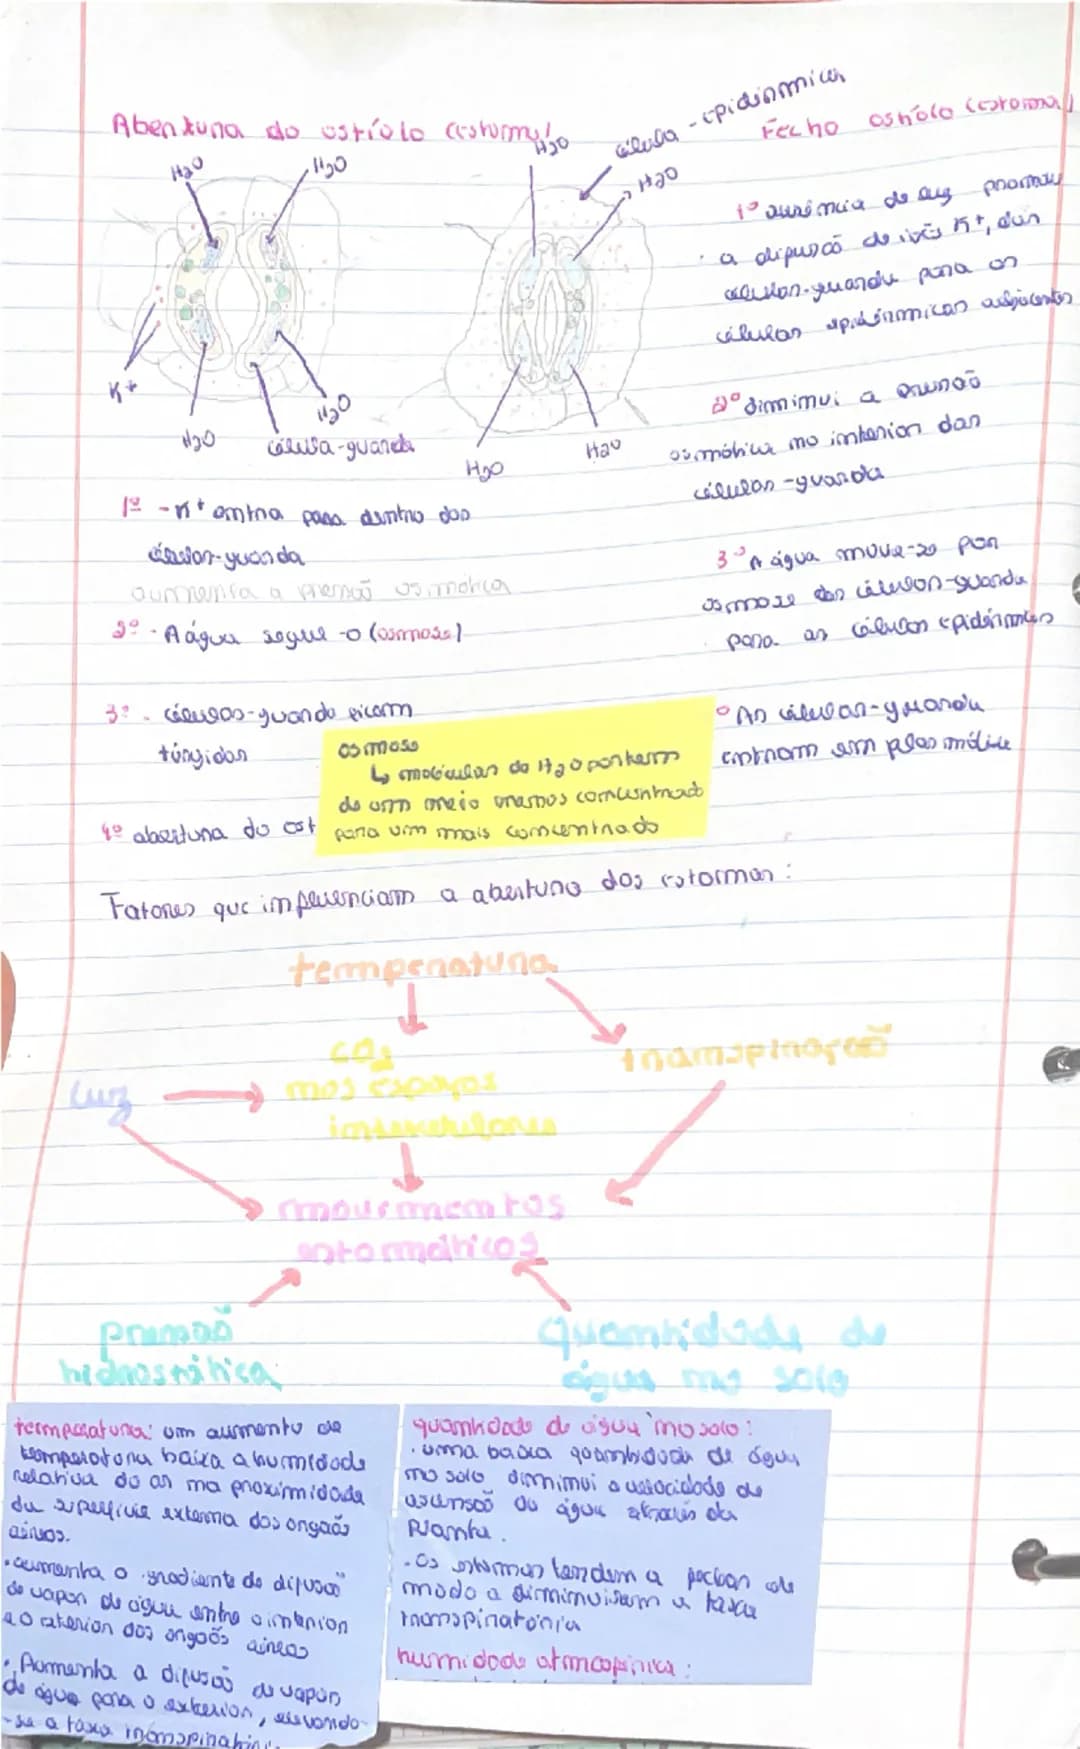 Abertura do ostíolo (estoma)
H2O
H2O
K+
H2O
H2O
célula-guarda
H2O
célula-epidérmica
H2O
H2O
H2O
1º - K+ entra para dentro das
células-guarda
aumenta a pressão osmótica
2º - A água segue-o (osmose)
3º - células-guarda ficam
túrgidas
4º abertura do ost
osmose
↳ moléculas de H2O partem
de um meio menos concentrado
para um mais concentrado
Fecho ostíolo (estoma)
1º ausência de luz promove
a difusão de iões K+, das
células-guarda para as
células epidérmicas adjacentes
2º diminui a pressão
osmótica no interior das
células-guarda
3º A água move-se por
osmose das células-guarda
para as células epidérmicas
As células-guarda
entram em plasmólise
Fatores que influenciam a abertura dos estomas:
temperatura
CO2
nos espaços
intercelulares
transpiração
luz
movimentos
estomáticos
pressão
hidrostática
Quantidade de
água no solo
temperatura: um aumento de
temperatura baixa a humidade
relativa do ar na proximidade
da superfície externa dos orgãos
aéreos.
• aumenta o gradiente de difusão
de vapor de água entre o interior
e o exterior dos orgãos aéreos
• Aumenta a difusão de vapor
de água para o exterior, elevando-
-se a taxa transpiratóri
quantidade de água no solo:
• uma baixa quantidade de água
no solo diminui a velocidade de
ascensão da água através da
planta.
• Os estomas tendem a fechar de
modo a diminuirem a taxa
transpiratória
humidade atmosférica: